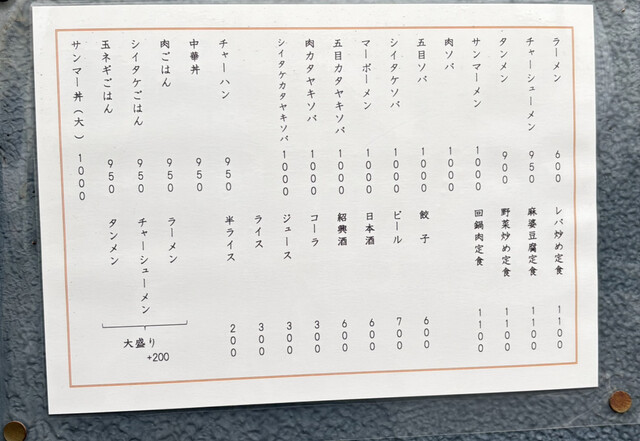 ラーメン 600
チャーシューメン 950
タンメン 900
サンマーメン 1000
肉ソバ 1000
五目ソバ 1000
シイタケソバ 1000
マーボーメン 1000
五目カタヤキソバ 1000
肉カタヤキソバ 1000
シイタケカタヤキソバ 1000
チャーハン 950
中華丼 950
肉ごはん 950
シイタケごはん 950
玉ネギごはん 950
サンマー丼(大) 1000
レバ炒め定食 1100
麻婆豆腐定食 1100
野菜炒め定食 1100
回鍋肉定食 1100
餃子 600
ビール 700
日本酒 600
紹興酒 600
コーラ 300
ジュース 300
ライス 300
半ライス 200
ラーメン
チャーシューメン
タンメン
大盛り
+200